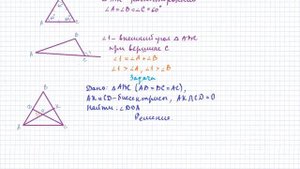 ∠A=∠B=∠C=60°
∠1- внешний угол △ABC
при вершине C
∠1 = ∠A + ∠B
∠1 > ∠A, ∠1 > ∠B
Задача
Дано: △ABC (AB=BC=AC),
AK и CD - биссектрисы, AK∩CD=O
Найти: ∠DOA
Решение.